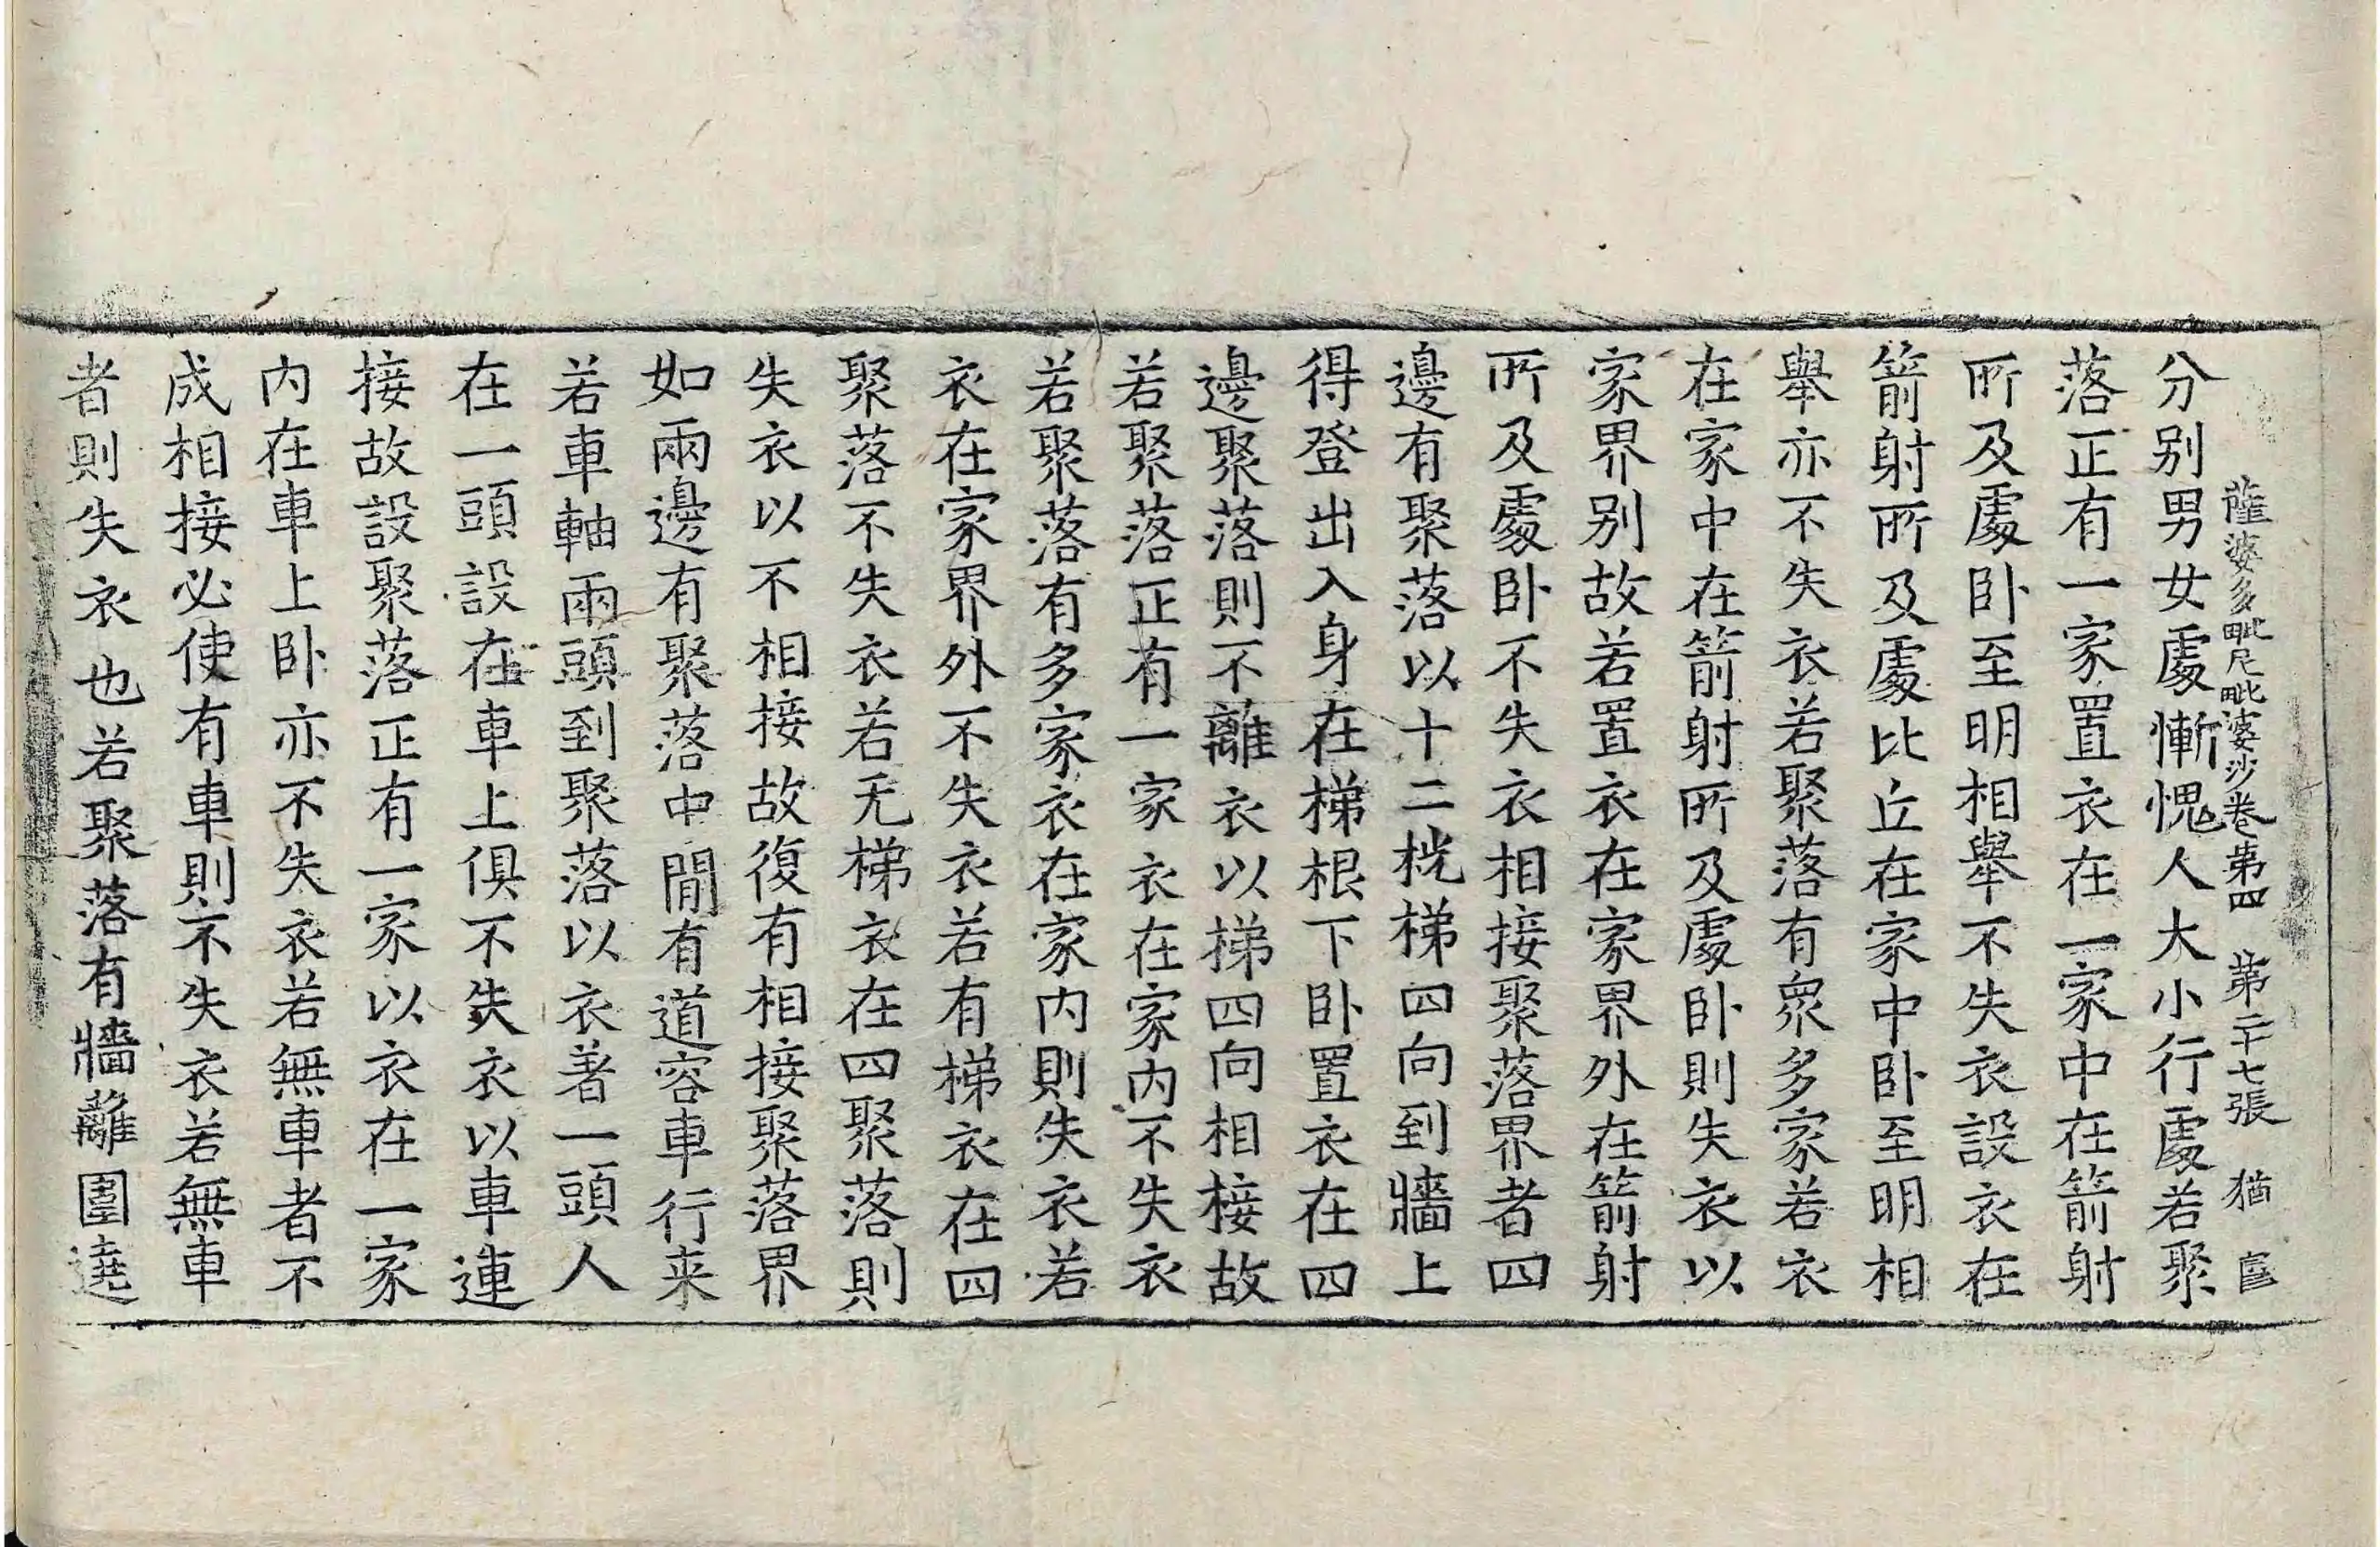 薩婆多毗尼毗婆沙卷第四 第二十七張 猶
分別男女處慚愧人大小行處若聚
落正有一家置衣在一家中在箭射
所及處卧至明相舉不失衣設衣在
箭射所及處比丘在家中卧至明相
舉亦不失衣若聚落有衆多家若衣
在家中在箭射所及處卧則失衣以
家界別故若置衣在家界外在箭射
所及處卧不失衣相接聚落界者四
邊有聚落以十二桄梯四向到牆上
得登出入身在梯根下卧置衣在四
邊聚落則不離衣以梯四向相接故
若聚落正有一家衣在家內不失衣
若聚落有多家衣在家內則失衣若
衣在家界外不失衣若有梯衣在四
聚落不失衣若无梯衣在四聚落則
失衣以不相接故復有相接聚落界
如兩邊有聚落中閒有道容車行来
若車軸兩頭到聚落以衣著一頭人
在一頭設在車上俱不失衣以車連
接故設聚落正有一家以衣在一家
內在車上卧亦不失衣若無車者不
成相接必使有車則不失衣若無車
者則失衣也若聚落有牆離圍遶